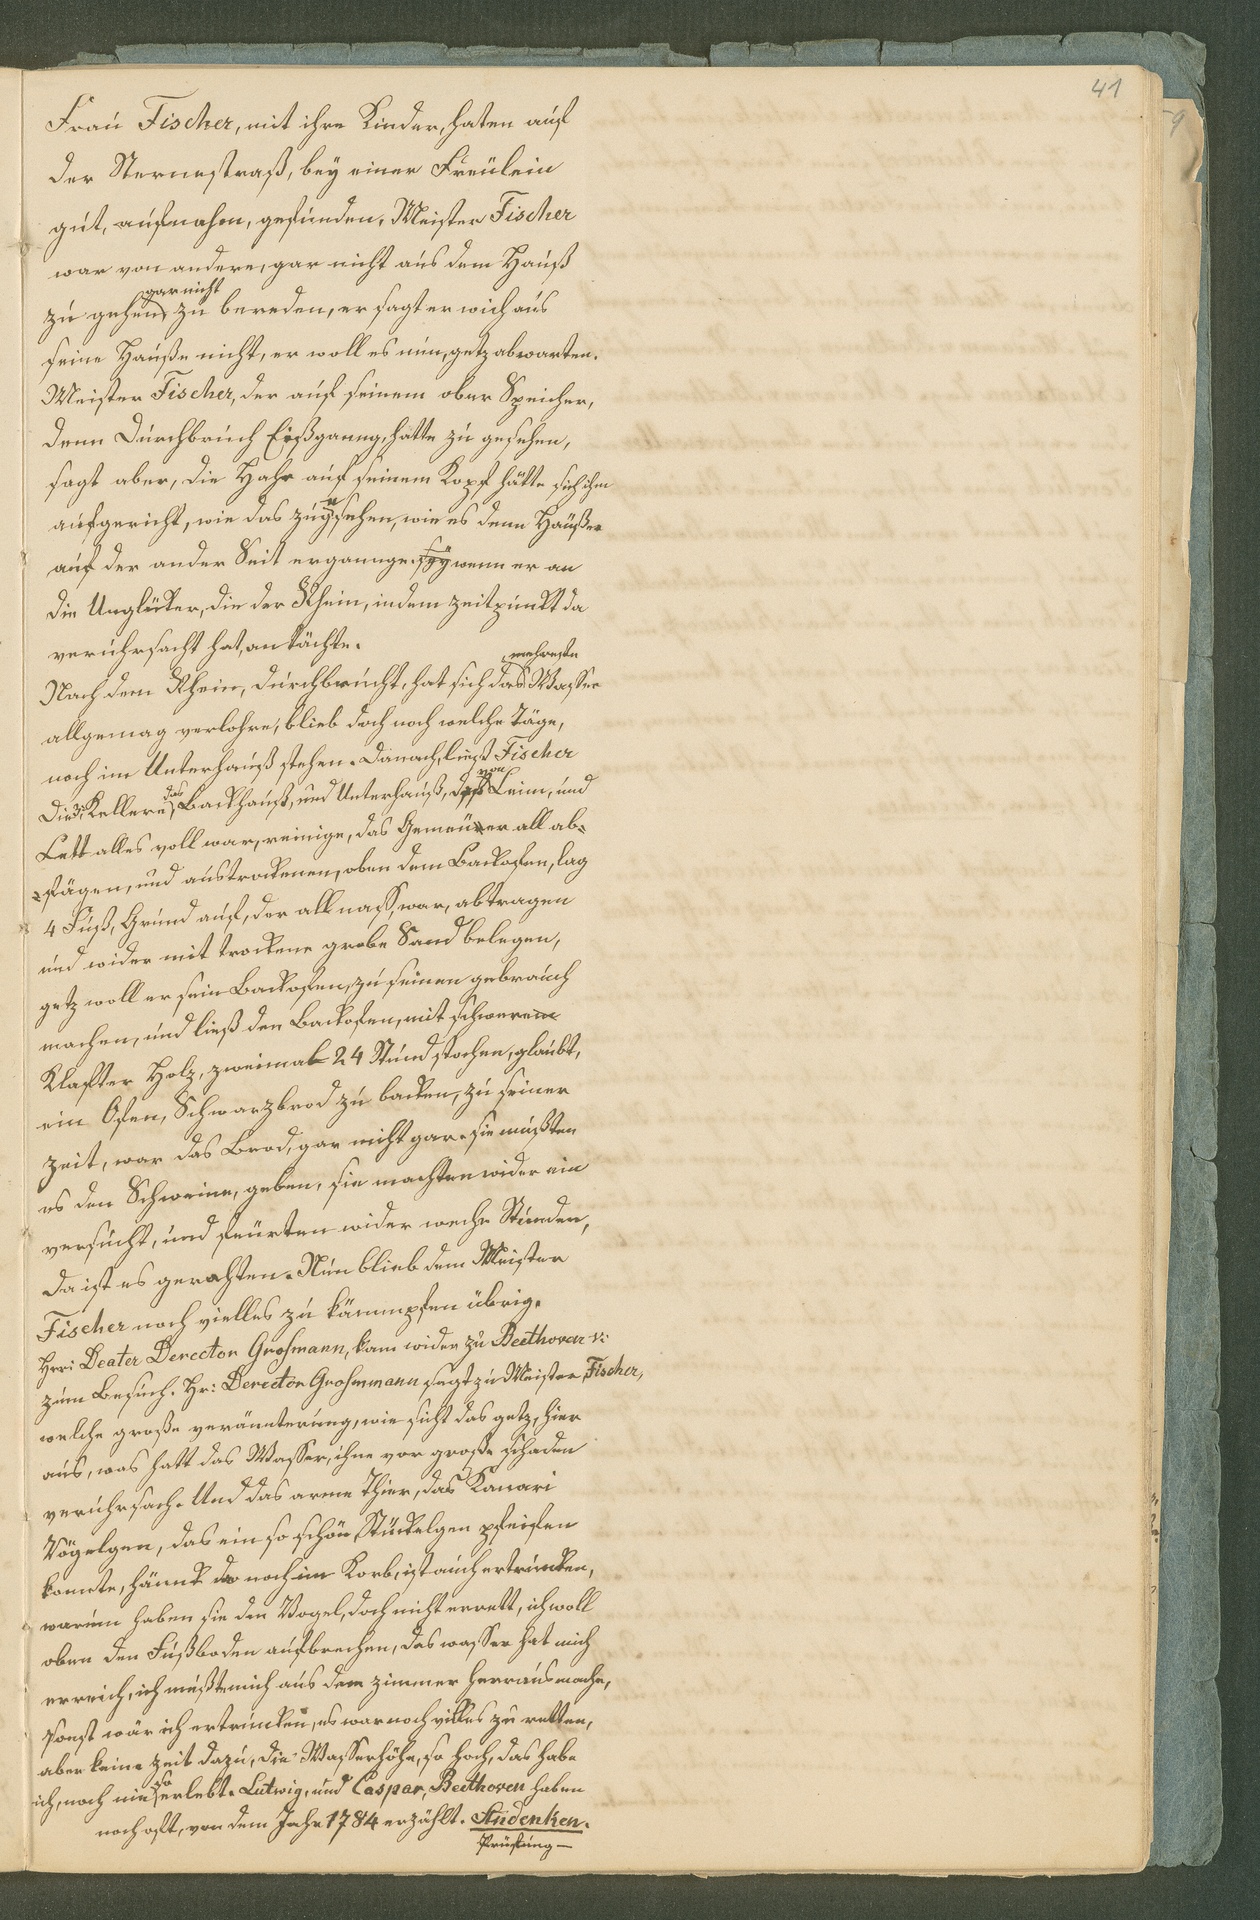 41
9
Frau Fischer, mit ihre Kinder, haten auf
der Sternestraß, bey einer Freülein
gut, aufnahm, gefunden, Meister Fischer
war von andere, gar nicht aus dem Hauß
gar nicht
zu gehen, zu bereden, er sagt er wich aus
seine Hauße nicht, er woll es nun, getz abwarten.
Meister Fischer, der auf seinem ober Speicher,
denn Durchbruch Eißganng, hatte zu gesehen,
sagt aber, die Hahr auf seinem Kopf hätte sich ihm
aufgericht, wie das zugesehen, wie es denn Häußer
auf der ander Seit ergannge wenn er an
die Unglücker, die der Rhein, in dem zeitpunckt da
veruhrsacht hat, an dächte.
mehreste
Nach dem Rhein, durchbrucht, hat sich das Wasser
allgemag verlohre, blieb doch noch welche Täge,
noch im Unterhauß stehen. Danach, ließ Fischer
das von
die Kellere, Backhauß, und Unterhauß, Leim, und
Lett alles voll war, reinige, das Gemeüer all ab-
-fägen, und austrockenen, oben dem Backofen, lag
4 Fuß, Grund auf, der all nass, war, abtragen
und wider mit trockene grobe Sand belegen,
getz woll er sein Backofen, zu seinen gebrauch
machen, und ließ den Backofen, mit schwerem
Klafter Holz, zweimal 24 Stund stochen, glaubt,
ein Ofen, Schwarzbrod zu backen, zu seiner
zeit, war das Brod, gar nicht gar. sie mußten
es den Schweine, geben, sie machten wider ein
versucht, und feürten wider weche Stunden,
da ist es gerahten. Nun blieb dem Meister
Fischer noch vielles zu kämmpfen übrig.
Hrr: Deater Derector Grosmann, kam wider zu Beethoven v:
zum Besuch. Hr: Derector Grosmmann sagt zu Meister Fischer,
welche große veränterung, wie sicht das getz, hier
aus, was hatt das Wasser, ihne vor große schaden
veruhrsach. Und das arme Thier, das Kanari
Vögelgen, das ein so schön Stückelgen pfeifen
konnte, hännck do noch im Korb, ist auch ertruncken,
warum haben sie den Vogel, doch nicht errett, ich woll
oben den Fußboden aufbrechen, das wasser hat mich
erreich, ich mußte mich aus dem zimmer herraus mache,
sonst wär ich ertruncken, es war noch villes zu retten,
aber keine zeit dazu, die Wasserhöhe, so hoch, das habe
so
ich, noch nie erlebt. Lutwig, und Caspar, Beethoven haben
noch oft, von dem Jahr 1784 erzählt. Andenken.
Prüfung —